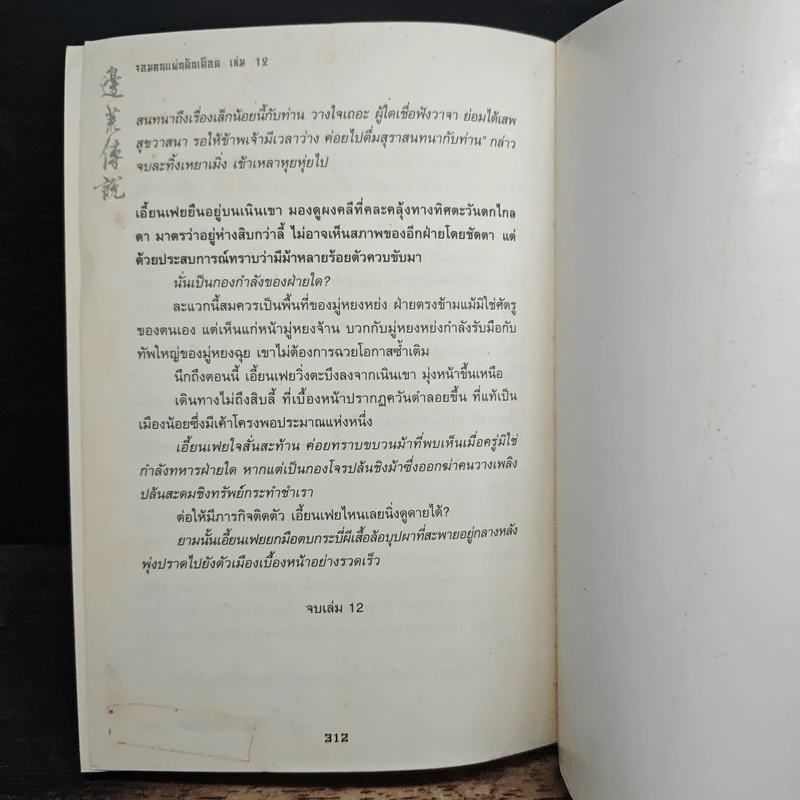 จอมคนแผ่นดินเดือด เล่ม 12
邊荒傳說
สนทนาถึงเรื่องเล็กน้อยนี้กับท่าน วางใจเถอะ ผู้ใดเชื่อฟังวาจา ย่อมได้เสพ
สุขวาสนา รอให้ข้าพเจ้ามีเวลาว่าง ค่อยไปดื่มสุราสนทนากับท่าน" กล่าว
จบละทิ้งเหยาเมิ่ง เข้าเหลาหุยหุ่ยไป
เอี้ยนเฟยยืนอยู่บนเนินเขา มองดูผงคลีที่คละคลุ้งทางทิศตะวันตกไกล
ตา มาตรว่าอยู่ห่างสิบกว่าลี้ ไม่อาจเห็นสภาพของอีกฝ่ายโดยชัดตา แต่
ด้วยประสบการณ์ทราบว่ามีม้าหลายร้อยตัวควบขับมา
นั่นเป็นกองกำลังของฝ่ายใด?
ละแวกนี้สมควรเป็นพื้นที่ของมู่หยงหย่ง ฝ่ายตรงข้ามแม้มิใช่ศัตรู
ของตนเอง แต่เห็นแก่หน้ามู่หยงจ้าน บวกกับมู่หยงหย่งกำลังรับมือกับ
ทัพใหญ่ของมู่หยงฉุย เขาไม่ต้องการฉวยโอกาสซ้ำเติม
นึกถึงตอนนี้ เอี้ยนเฟยวิ่งตะบึงลงจากเนินเขา มุ่งหน้าขึ้นเหนือ
เดินทางไม่ถึงสิบลี้ ที่เบื้องหน้าปรากฏควันดำลอยขึ้น ที่แท้เป็น
เมืองน้อยซึ่งมีเค้าโครงพอประมาณแห่งหนึ่ง
เอี้ยนเฟยใจสั่นสะท้าน ค่อยทราบขบวนม้าที่พบเห็นเมื่อครู่มิใช่
กำลังทหารฝ่ายใด หากแต่เป็นกองโจรปล้นชิงม้าซึ่งออกฆ่าคนวางเพลิง
ปล้นสะดมชิงทรัพย์กระทำชำเรา
ต่อให้มีภารกิจติดตัว เอี้ยนเฟยไหนเลยนิ่งดูดายได้?
ยามนั้นเอี้ยนเฟยยกมือตบกระบี่ผีเสื้อล้อบุปผาที่สะพายอยู่กลางหลัง
พุ่งปราดไปยังตัวเมืองเบื้องหน้าอย่างรวดเร็ว
จบเล่ม 12
312